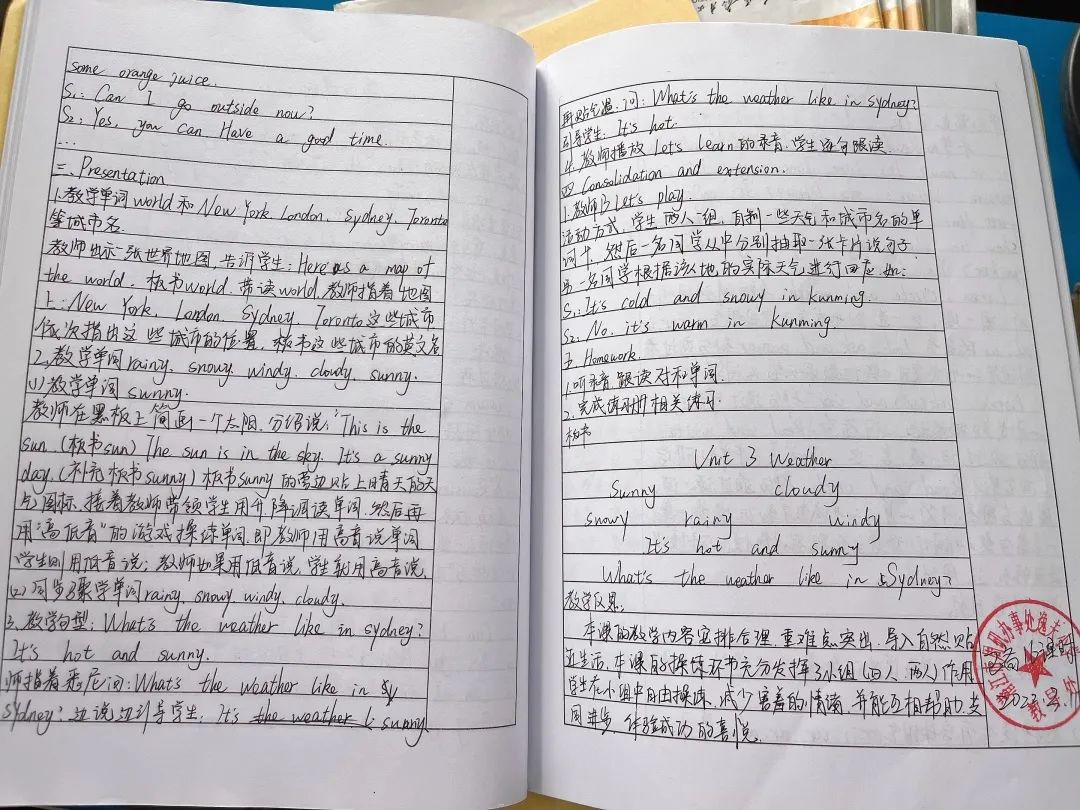 some orange juice.
S₁: Can I go outside now?
S₂: Yes, you can Have a good time.
...
三、Presentation
1.教学单词world和New York London、Sydney、Toronto
等城市名.
教师出示一张世界地图,告诉学生:Here is a map of
the world.板书world.带读world.教师指着地图
上:New York、London、Sydney、Toronto这些城市
依次指出这些城市的位置,板书这些城市的英文名
2、教学单词rainy、snowy、windy、cloudy、sunny.
(1)教学单词sunny.
教师在黑板上简画一个太阳.介绍说:"This is the
sun.(板书sun) The sun is in the sky. It's a sunny
day.(补充板书sunny)板书sunny的旁边贴上晴天的天
气图标.接着教师带领学生用升降调读单词.然后再
用"高低音"的游戏操练单词.即教师用高音说单词
学生则用低音说;教师如果用低音说,学生就用高音说.
(2)同步骤学单词rainy、snowy、windy、cloudy.
3、教学句型:What's the weather like in sydney?
It's hot and sunny.
师指着悉尼问:What's the weather like in sy
sydney?边说边引导学生:It's the weather l sunny
再贴气温.问:What's the weather like in sydney?
引导学生:It's hot.
4、教师播放Let's learn的录音.学生逐句跟读.
四 Consolidation and extension.
1.教师B Let's play.
活动方式:学生两人一组,自制一些天气和城市名的单
词卡,然后一名同学从中分别抽取一张卡片说句子.
另一名同学根据该地的实际天气进行回应如:
S₁: It's cold and snowy in Kunming.
S₂: No, it's warm in Kunming.
五、Homework.
1.听录音,跟读对和单词.
2.完成练习册相关练习.
板书
Unit 3 Weather
sunny cloudy
snowy rainy windy
It's hot and sunny
What's the weather like in Sydney?
教学反思:
本课的教学内容安排合理,重难点突出,导入自然贴
近生活.本课的操练环节充分发挥了小组(四人、两人)作用
学生在小组中自由操练,减少害羞的情绪,并能互相帮助,共
同进步,体验成功的喜悦.
2023.